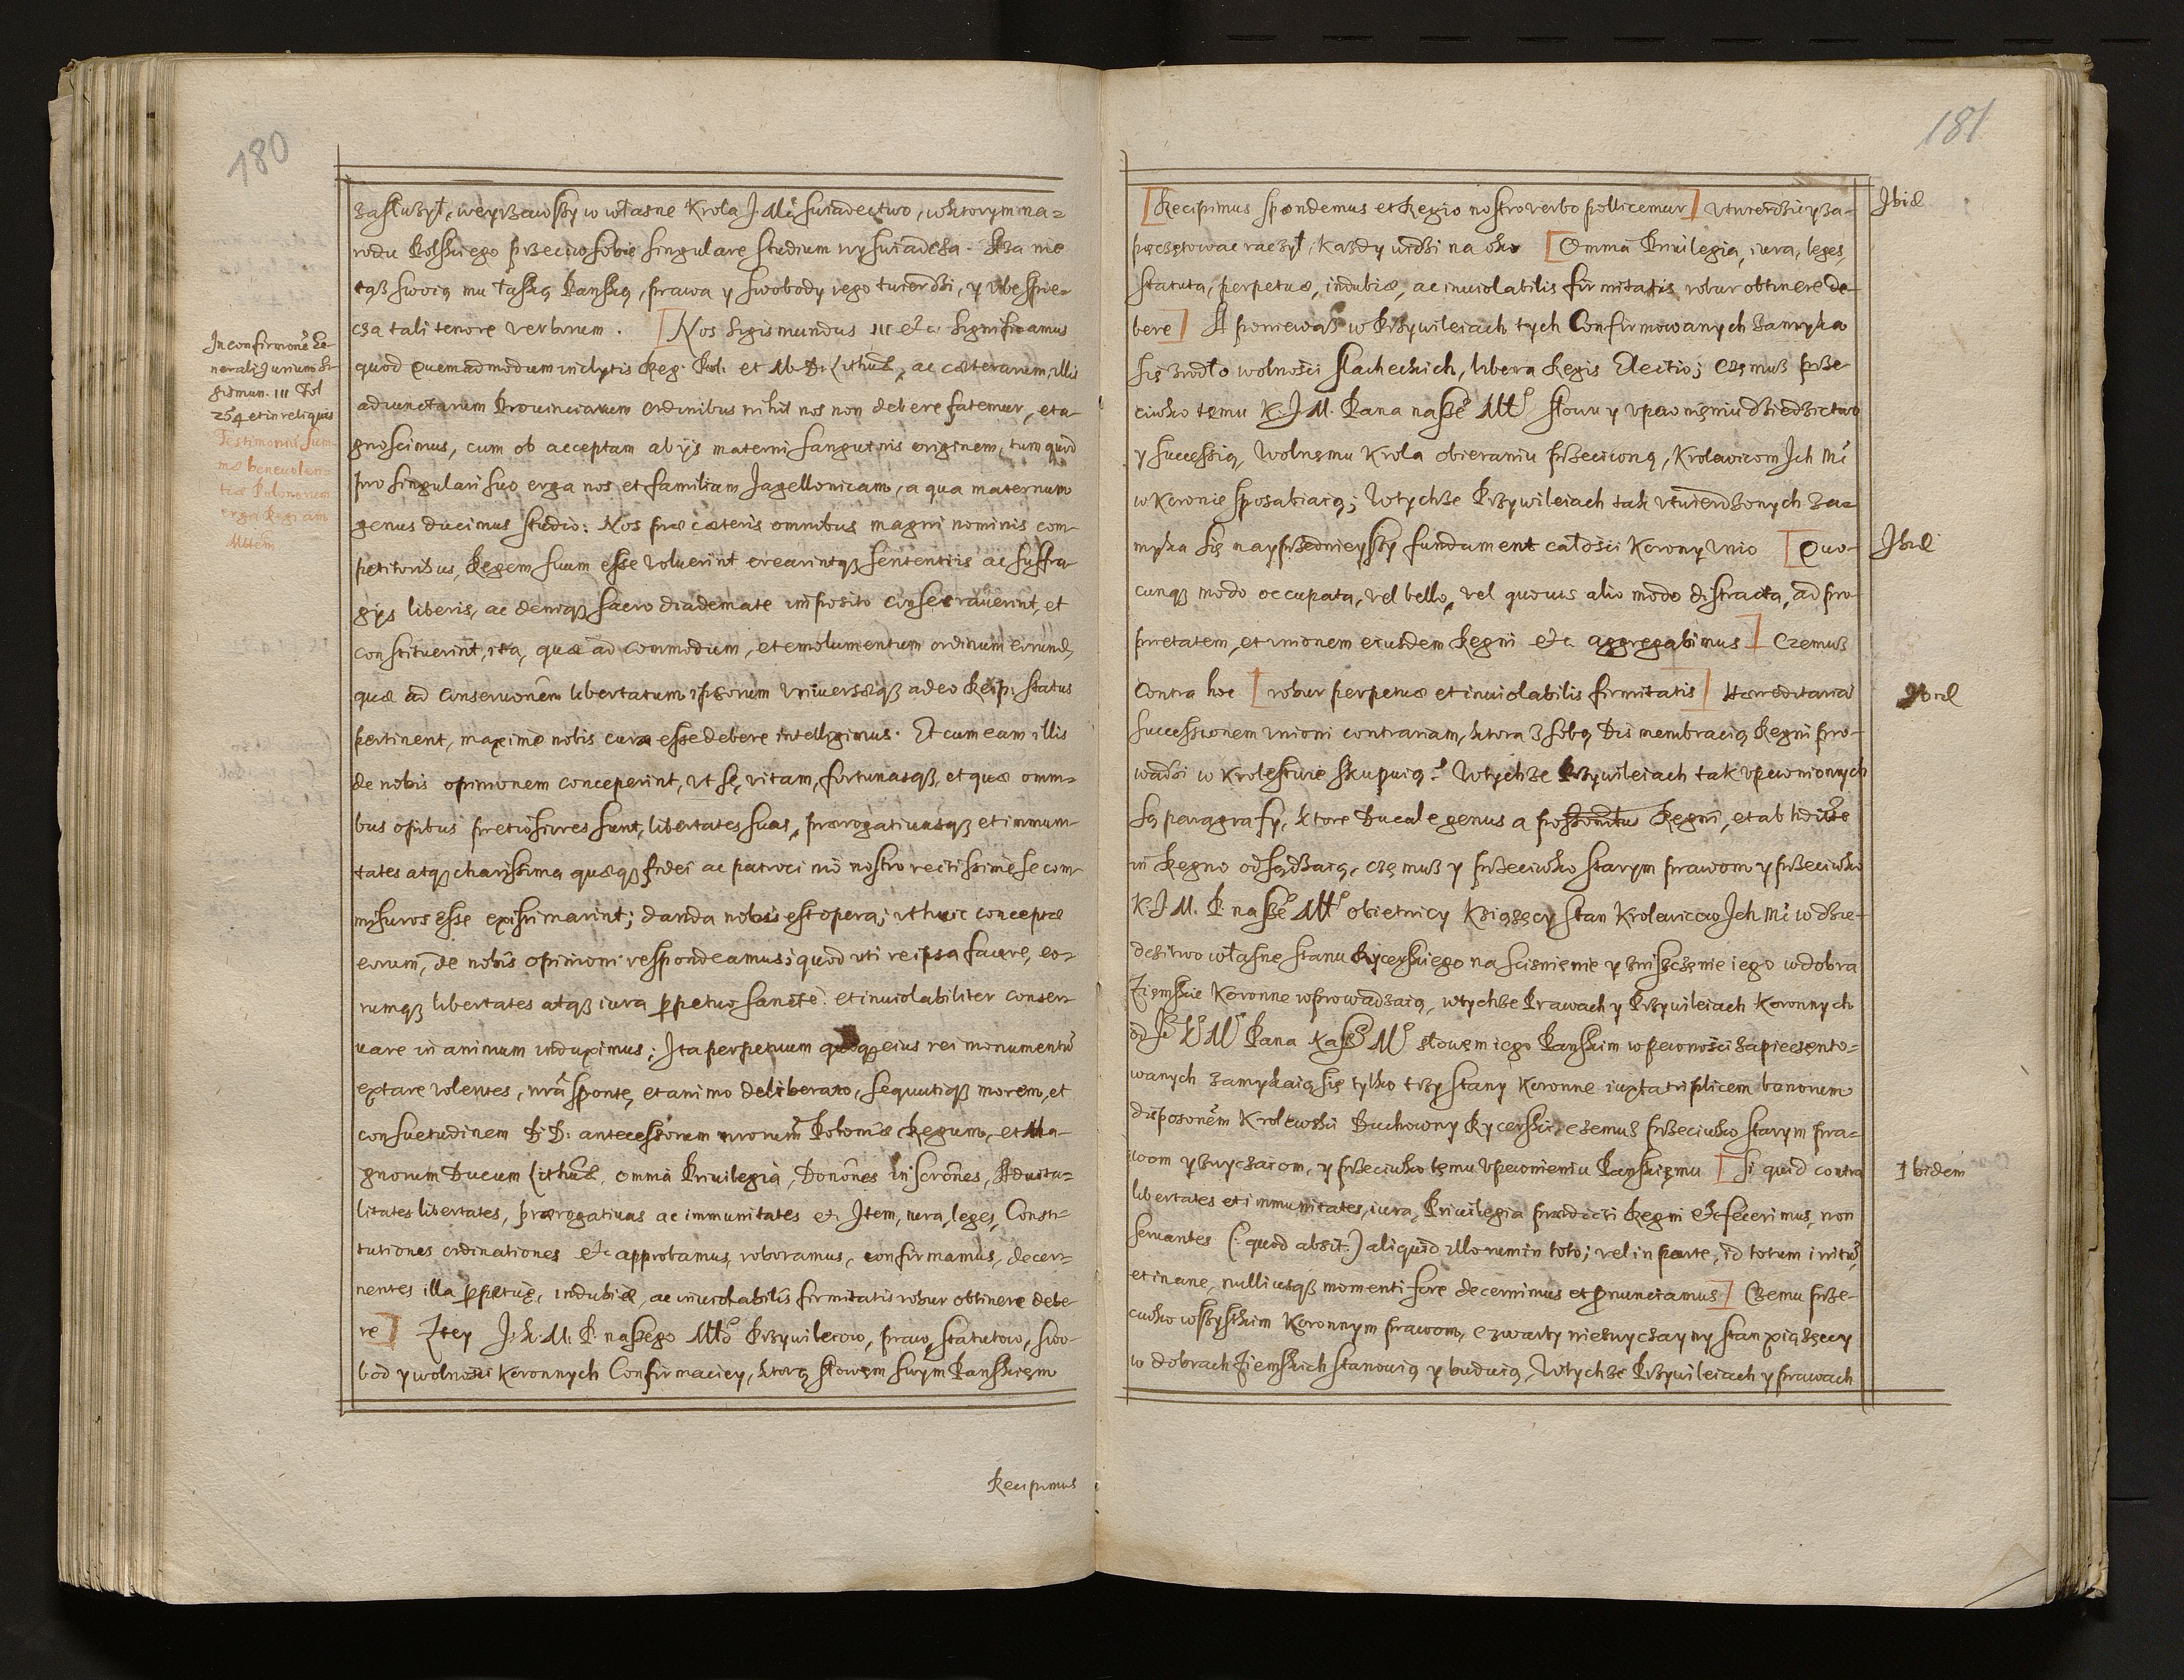 180
zasłużył, weyzrawszy w własne Krola J. Mći świadectwo, w ktorym na-
rodu Polskiego przeciw sobie singulare studium wyświadcza. Y za nie
taż swoią mu łaską Pańską, prawa y swobody iego twierdzi, y vbespie-
cza tali tenore verborum. [Nos Sigismundus III etc. Significamus
quod quemadmodum inclytis Reg. Pol. et M. D. Lithuae, ac caeterarum, illis
adiunctarum Prouinciarum ordinibus nihil nos non debere fatemur, et a-
gnoscimus, cum ob acceptam ab ijs materni sanguinis originem, tum quod
pro singulari suo erga nos et familiam Jagellonicam, a qua maternum
genus ducimus studio: Nos prae caeteris omnibus magni nominis com-
petitoribus, Regem suum esse voluerint crearintqʒ sententiis ac suffra-
gijs liberis, ac deniqʒ sacro diademate imposito consecrauerint, et
constituerint, ita, quae ad commodum, et emolumentum ordinum eorund,
quae ad conseruonem libertatum ipsorum vniuersaeqʒ adeo Reip: status
pertinent, maxime nobis curae esse debere intelligimus. Et cum eam illi
de nobis opinionem conceperint, vt se, vitam, fortunasqʒ, et quae omni-
bus opibus pretiosiores sunt, libertates suas, praerogatiuasqʒ et immuni-
tates atqʒ charissima quaeqʒ fidei ac patrocinio nostro rectissime se com-
missuros esse existimarint; danda nobis est opera, vt huic conceptae
eorum, de nobis opinioni respondeamus; quod vti reipsa facere, eo-
rumqʒ libertates atqʒ iura ppetuo sancte et inuiolabiliter conser-
uare in animum induximus; Ita perpetuum quoqʒ eius rei monumentũ
extare volentes, nrã sponte, et animo deliberato, sequutiqʒ morem, et
consuetudinem D. D: antecessorum nrorum Poloniae Regum, et Ma-
gnorum Ducum Lithuae, omnia Priuilegia, Donones inscrones, Aduita-
litates libertates, praerogatiuas ac immunitates etc. Item, iura, leges, Consti-
tutiones ordinationes etc. approbamus, roboramus, confirmamus, decer-
nentes illa ppetuae, indubiae, ac inuiolabilis firmitatis robur obtinere debe-
re] Ztey J. K. M. P. naszego Młō Przywileiow, praw, statutow, swo-
bod y wolności Koronnych Confirmaciey, ktorą słowem swym Pańskiem
Recipimus
In confirmone Ge-
nerali Jurium Si-
gismun. III Fol
254 et in reliquis
Testimonii sum-
mae beneuolen-
tiae Polonorum
erga Regiam
Mttem
181
[Recipimus spondemus et Regio nostro verbo pollicemur] vtwierdzić y za-
pęczętować raczył, każdy widzi na oko [Omnia Priuilegia, iura, leges,
statuta, perpetuae, indubiae, ac inuiolabilis firmitatis robur obtinere de-
bere] A ponieważ w Przywileiach tych Confirmowanych zamyka
się zrodło wolności slacheckich, libera Regis Electio; czemuż prze-
ciwko temu K. J. M. Pana nasze Młº słowu y vpewnieniu dziedzictwo
y successią, wolnemu Krola obieraniu przeciwną, Krolewicom Ich Mi
w Koronie sposabiaią; W tychże Przywileiach tak vtwierdzonych za-
myka się nayprzednieyszy fundament całości Korony vnio [Quo-
cunqʒ modo occupata, vel bello, vel quouis alio modo distracta, ad pro-
prietatem, et vnionem eiusdem Regni etc. aggregabimus] Czemuż
Contra hoc [robur perpetuae et inuiolabilis firmitatis] Haereditariã
successionem vnioni contrariam, ktora z sobą dismembracią Regni pro-
wadzi w Krolestwie skupuią? W tychże Przywileiach tak vpewnionych
Są paragrafy, ktore Ducale genus a possessionibus Regni, et ab haeredite
in Regno odsądzaią, czemuż y przeciwko starym prawom y przeciwko
K. J. M. P. nasze Młº obietnicy Książęcy stan Krolewicow Ich Mi w dzie-
dzictwo własne stanu Rycerskiego na ściśnienie y zniszczenie iego w dobra
Ziemskie Koronne wprowadzaią, w tychże Prawach y Przywileiach Koronnych
od Jº K M Pana Naszº Mº słowem iego Pańskim w pewności zapieczęto-
wanych zamykaią się tylko trzy stany Koronne iuxta triplicem bonorum
disposonem Krolewski Duchowny Rycerski, czemuż przeciwko starym pra-
wom y zwyczaiom, y przeciwko temu vpewnieniu Pańskiemu [Si quid contra
libertates et immunitates, iura, Priuilegia praedicti Regni etc. fecerimus, non
seruantes (: quod absit :) aliquid illorum in toto; vel in parte, id totum irritũ,
et inane, nulliusqʒ momenti fore decernimus et pnunciamus] Czemu prze-
ciwko wszystkim Koronnym prawom, czwarty niezwyczayny stan xiążęcy
w dobrach Ziemskich stanowią y buduią, W tychże Przywileiach y prawach
Ibid
Ibid
Ibid
Ibidem